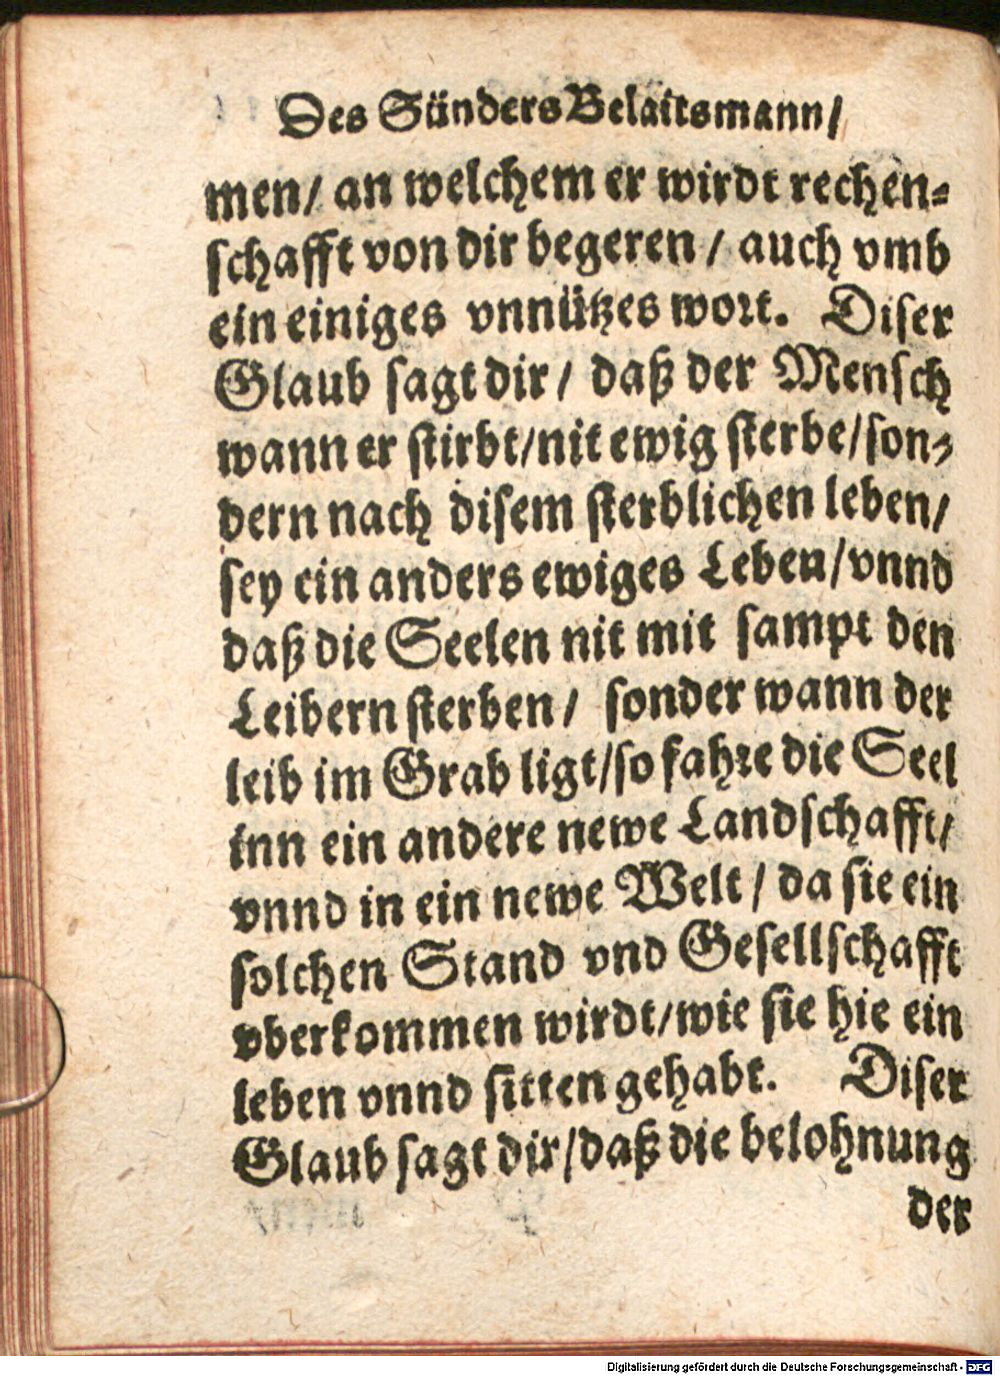 Des Sünders Belaitsmann/
men/ an welchem er wirdt rechen⸗
schafft von dir begeren / auch vmb
ein einiges vnnützes wort. Diser
Glaub sagt dir / daß der Mensch
wann er stirbt/nit ewig sterbe/son⸗
dern nach disem sterblichen leben/
sey ein anders ewiges Leben/vnnd
daß die Seelen nit mit sampt den
Leibern sterben / sonder wann der
leib im Grab ligt/so fahre die Seel
inn ein andere newe Landschafft/
vnnd in ein newe Welt / da sie ein
solchen Stand vnd Gesellschafft
vberkommen wirdt/wie sie hie ein
leben vnnd sitten gehabt. Diser
Glaub sagt dir/daß die belohnung
der
Digitalisierung gefördert durch die Deutsche Forschungsgemeinschaft - DFG